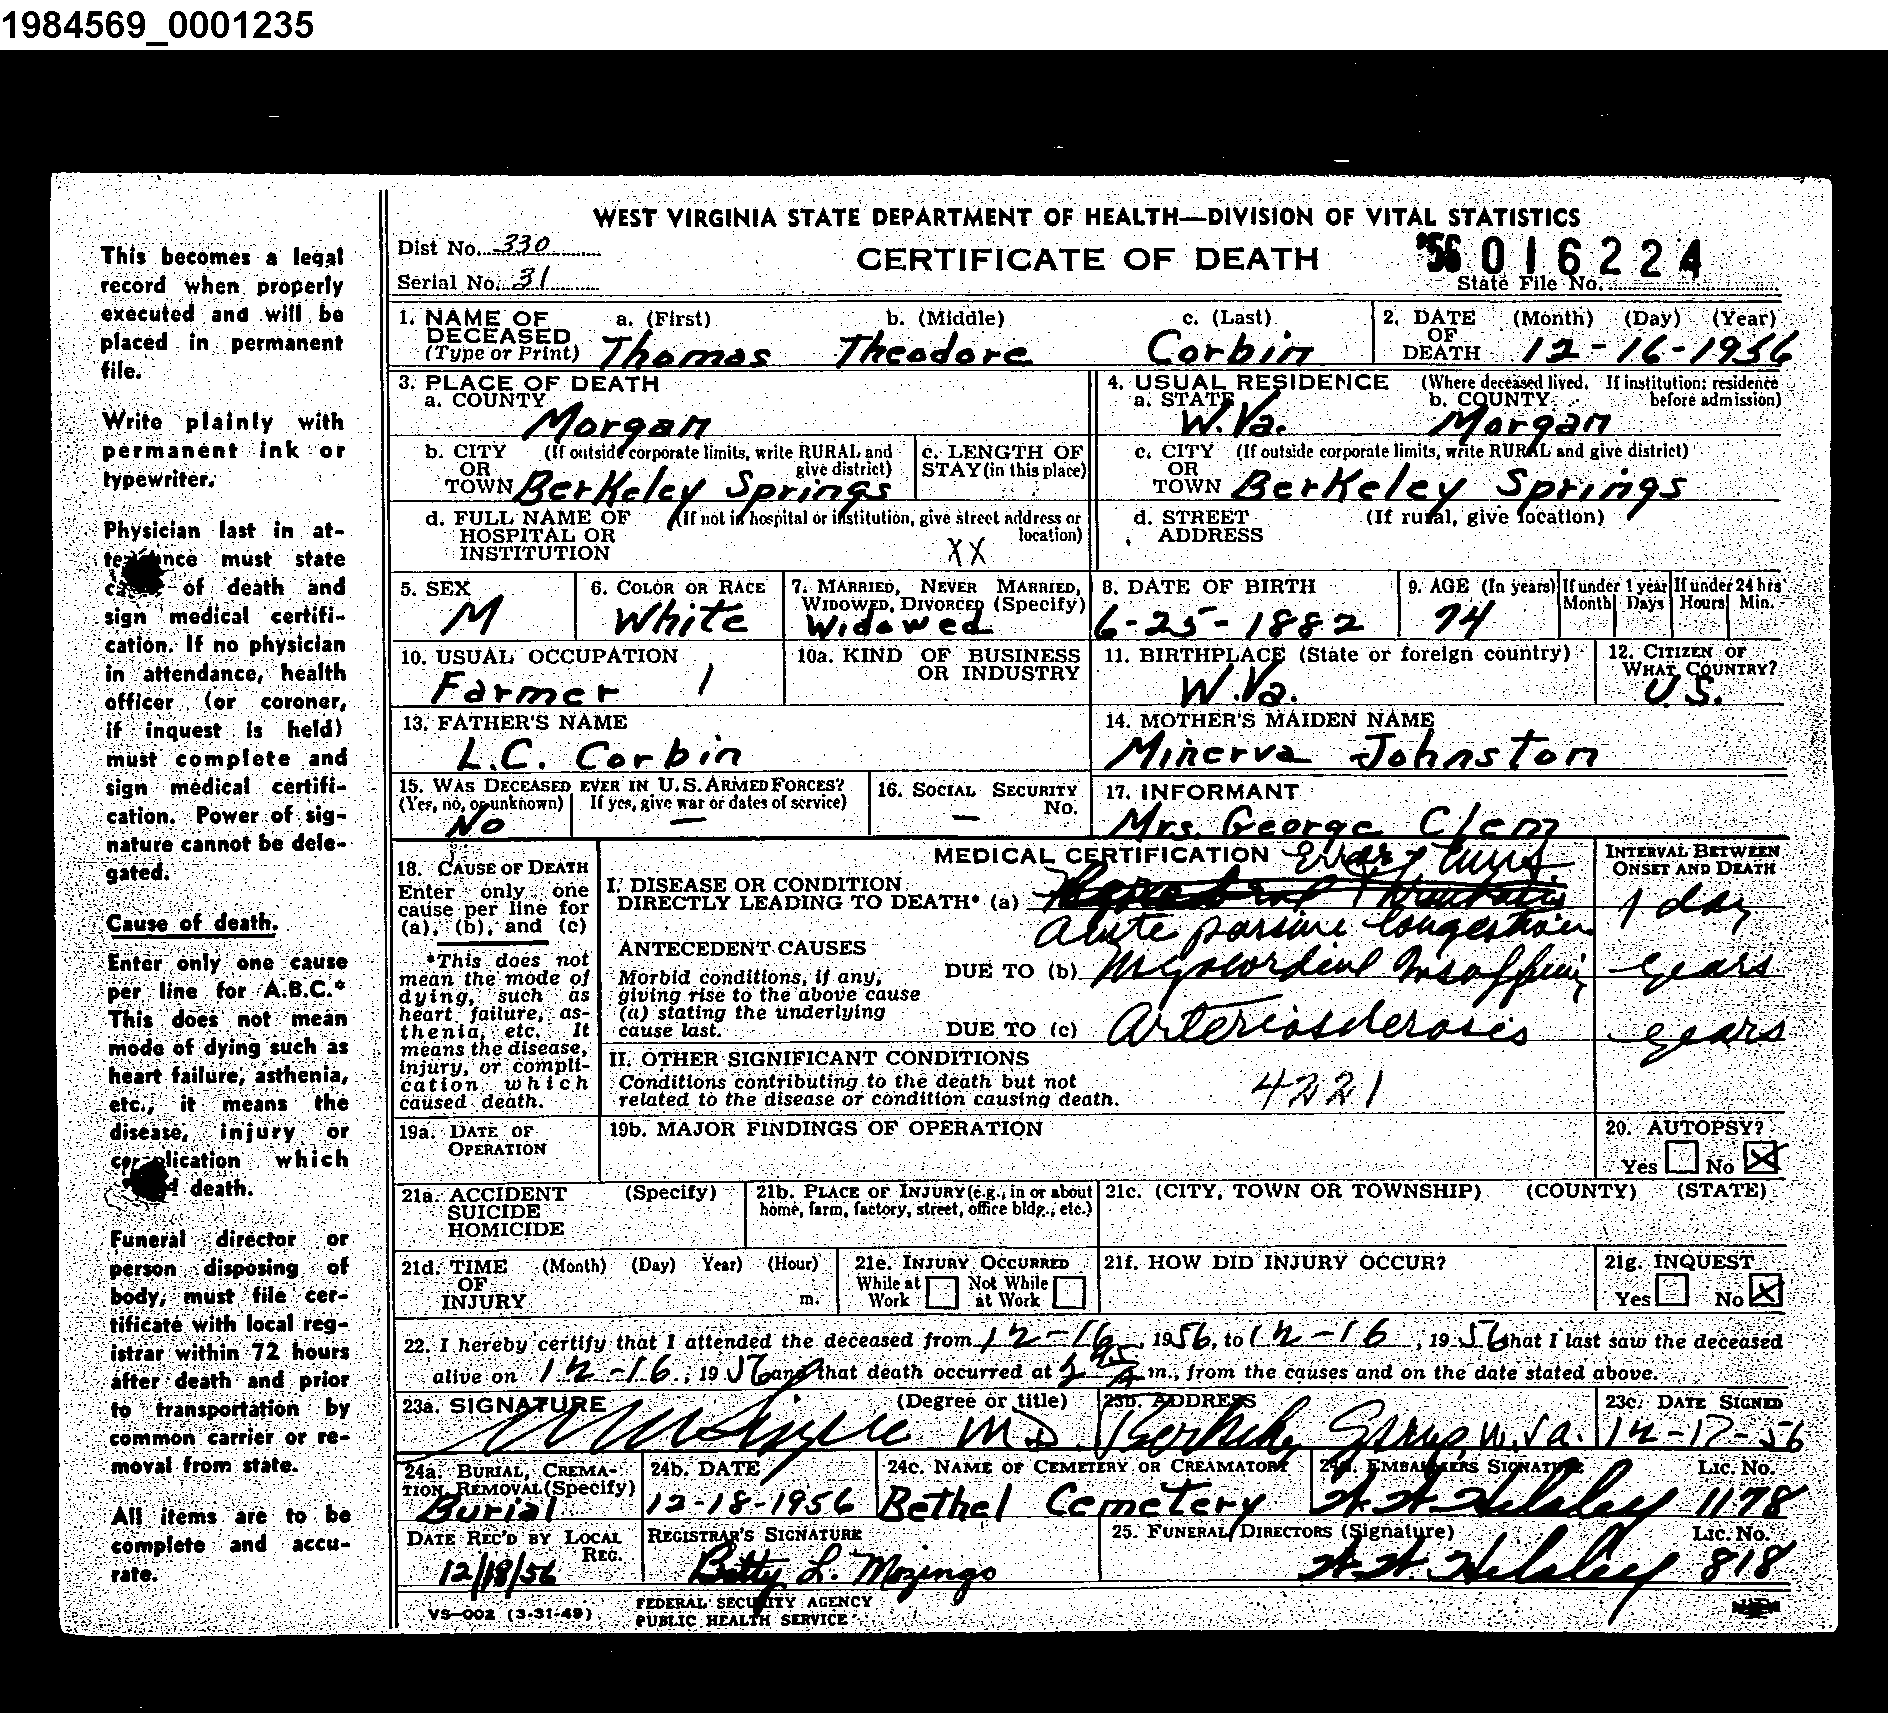 1984569_0001235
This becomes a legal
record when properly
executed and will be
placed in permanent
file.
Write plainly with
permanent ink or
typewriter.
Physician last in at-
must state
of death and
sign medical certifi-
cation. If no physician
in attendance, health
officer (or coroner,
if inquest is held)
must complete and
sign medical certifi-
cation. Power of sig-
nature cannot be dele-
gated.
Cause of death.
Enter only one cause
per line for A.B.C.*
This does not mean
mode of dying such as
heart failure, asthenia,
etc., it means the
disease, injury or
which
death.
Funeral director or
person disposing of
body, must file cer-
tificate with local reg-
istrar within 72 hours
after death and prior
to transportation by
common carrier or re-
moval from state.
All items are to be
complete and accu-
rate.
WEST VIRGINIA STATE DEPARTMENT OF HEALTH—DIVISION OF VITAL STATISTICS
Dist No. 330
CERTIFICATE OF DEATH
'56 016224
Serial No. 31
State File No.
1. NAME OF DECEASED (Type or Print) a. (First) b. (Middle) c. (Last)
Thomas Theodore Corbin
2. DATE OF DEATH (Month) (Day) (Year)
12-16-1956
3. PLACE OF DEATH
a. COUNTY
Morgan
4. USUAL RESIDENCE (Where deceased lived. If institution: residence before admission)
a. STATE b. COUNTY
W.Va. Morgan
b. CITY OR TOWN (If outside corporate limits, write RURAL and give district)
Berkeley Springs
c. LENGTH OF STAY (in this place)
c. CITY OR TOWN (If outside corporate limits, write RURAL and give district)
Berkeley Springs
d. FULL NAME OF HOSPITAL OR INSTITUTION (If not in hospital or institution, give street address or location)
XX
d. STREET ADDRESS (If rural, give location)
5. SEX
M
6. COLOR OR RACE
White
7. MARRIED, NEVER MARRIED, WIDOWED, DIVORCED (Specify)
Widowed
8. DATE OF BIRTH
6-25-1882
9. AGE (In years)
74
If under 1 year Month Days
If under 24 hrs Hours Min.
10. USUAL OCCUPATION
Farmer 1
10a. KIND OF BUSINESS OR INDUSTRY
11. BIRTHPLACE (State or foreign country)
W.Va.
12. CITIZEN OF WHAT COUNTRY?
U.S.
13. FATHER'S NAME
L.C. Corbin
14. MOTHER'S MAIDEN NAME
Minerva Johnston
15. WAS DECEASED EVER IN U.S. ARMED FORCES?
(Yes, no, or unknown) If yes, give war or dates of service)
No —
16. SOCIAL SECURITY No.
—
17. INFORMANT
Mrs. George Clenz
18. CAUSE OF DEATH
Enter only one
cause per line for
(a), (b), and (c)
*This does not
mean the mode of
dying, such as
heart failure, as-
thenia, etc. It
means the disease,
injury, or compli-
cation which
caused death.
MEDICAL CERTIFICATION
I. DISEASE OR CONDITION
DIRECTLY LEADING TO DEATH* (a)
Acute passive congestion
INTERVAL BETWEEN ONSET AND DEATH
1 day
ANTECEDENT CAUSES
Morbid conditions, if any,
giving rise to the above cause
(a) stating the underlying
cause last.
DUE TO (b) Myocardial
years
DUE TO (c) Arteriosclerosis
years
II. OTHER SIGNIFICANT CONDITIONS
Conditions contributing to the death but not
related to the disease or condition causing death.
4221
19a. DATE OF OPERATION
19b. MAJOR FINDINGS OF OPERATION
20. AUTOPSY?
Yes No X
21a. ACCIDENT SUICIDE HOMICIDE (Specify)
21b. PLACE OF INJURY (e.g., in or about home, farm, factory, street, office bldg., etc.)
21c. (CITY, TOWN OR TOWNSHIP) (COUNTY) (STATE)
21d. TIME OF INJURY (Month) (Day) Year) (Hour) m.
21e. INJURY OCCURRED
While at Work Not While at Work
21f. HOW DID INJURY OCCUR?
21g. INQUEST
Yes No X
22. I hereby certify that I attended the deceased from 12-16, 1956, to 12-16, 1956 that I last saw the deceased
alive on 12-16, 1956 and that death occurred at m., from the causes and on the date stated above.
23a. SIGNATURE (Degree or title)
M.D.
23b. ADDRESS
Berkeley Springs, W.Va.
23c. DATE SIGNED
12-17-56
24a. BURIAL, CREMATION, REMOVAL (Specify)
Burial
24b. DATE
12-18-1956
24c. NAME OF CEMETERY OR CREAMATORY
Bethel Cemetery
24d. EMBALMERS SIGNATURE Lic. No.
Helsley 1178
DATE REC'D BY LOCAL REG.
12/18/56
REGISTRAR'S SIGNATURE
Betty L. Mozingo
25. FUNERAL DIRECTORS (Signature) Lic. No.
Helsley 818
VS-002 (3-31-49)
FEDERAL SECURITY AGENCY
PUBLIC HEALTH SERVICE